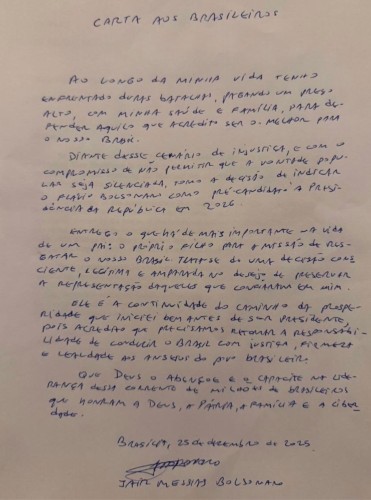 CARTA AOS BRASILEIROS
AO LONGO DA MINHA VIDA TENHO
ENFRENTADO DURAS BATALHAS, PAGANDO UM PREÇO
ALTO, COM MINHA SAÚDE E FAMÍLIA, PARA DE-
FENDER AQUILO QUE ACREDITO SER O MELHOR PARA
O NOSSO BRASIL.
DIANTE DESSE CENÁRIO DE INJUSTIÇA, E COM O
COMPROMISSO DE NÃO PERMITIR QUE A VONTADE POPU-
LAR SEJA SILENCIADA, TOMO A DECISÃO DE INDICAR
O FLÁVIO BOLSONARO COMO PRÉ-CANDIDATO À PRESI-
DÊNCIA DA REPÚBLICA EM 2026.
ENTREGO O QUE HÁ DE MAIS IMPORTANTE NA VIDA
DE UM PAI: O PRÓPRIO FILHO PARA A MISSÃO DE RES-
GATAR O NOSSO BRASIL. TRATA-SE DE UMA DECISÃO CONS-
CIENTE, LEGÍTIMA E AMPARADA NO DESEJO DE PRESERVAR
A REPRESENTAÇÃO DAQUELES QUE CONFIARAM EM MIM.
ELE É A CONTINUIDADE DO CAMINHO DA PROSPE-
RIDADE QUE INICIEI BEM ANTES DE SER PRESIDENTE,
POIS ACREDITO QUE PRECISAMOS RETOMAR A RESPONSABI-
LIDADE DE CONDUZIR O BRASIL COM JUSTIÇA, FIRMEZA
E LEALDADE AOS ANSEIOS DO POVO BRASILEIRO.
QUE DEUS O ABENÇOE E O CAPACITE NA LIDE-
RANÇA DESSA CORRENTE DE MILHÕES DE BRASILEIROS
QUE HONRAM A DEUS, A PÁTRIA, A FAMÍLIA E A LIBER-
DADE.
BRASÍLIA, 25 DE DEZEMBRO DE 2025
JAIR MESSIAS BOLSONARO